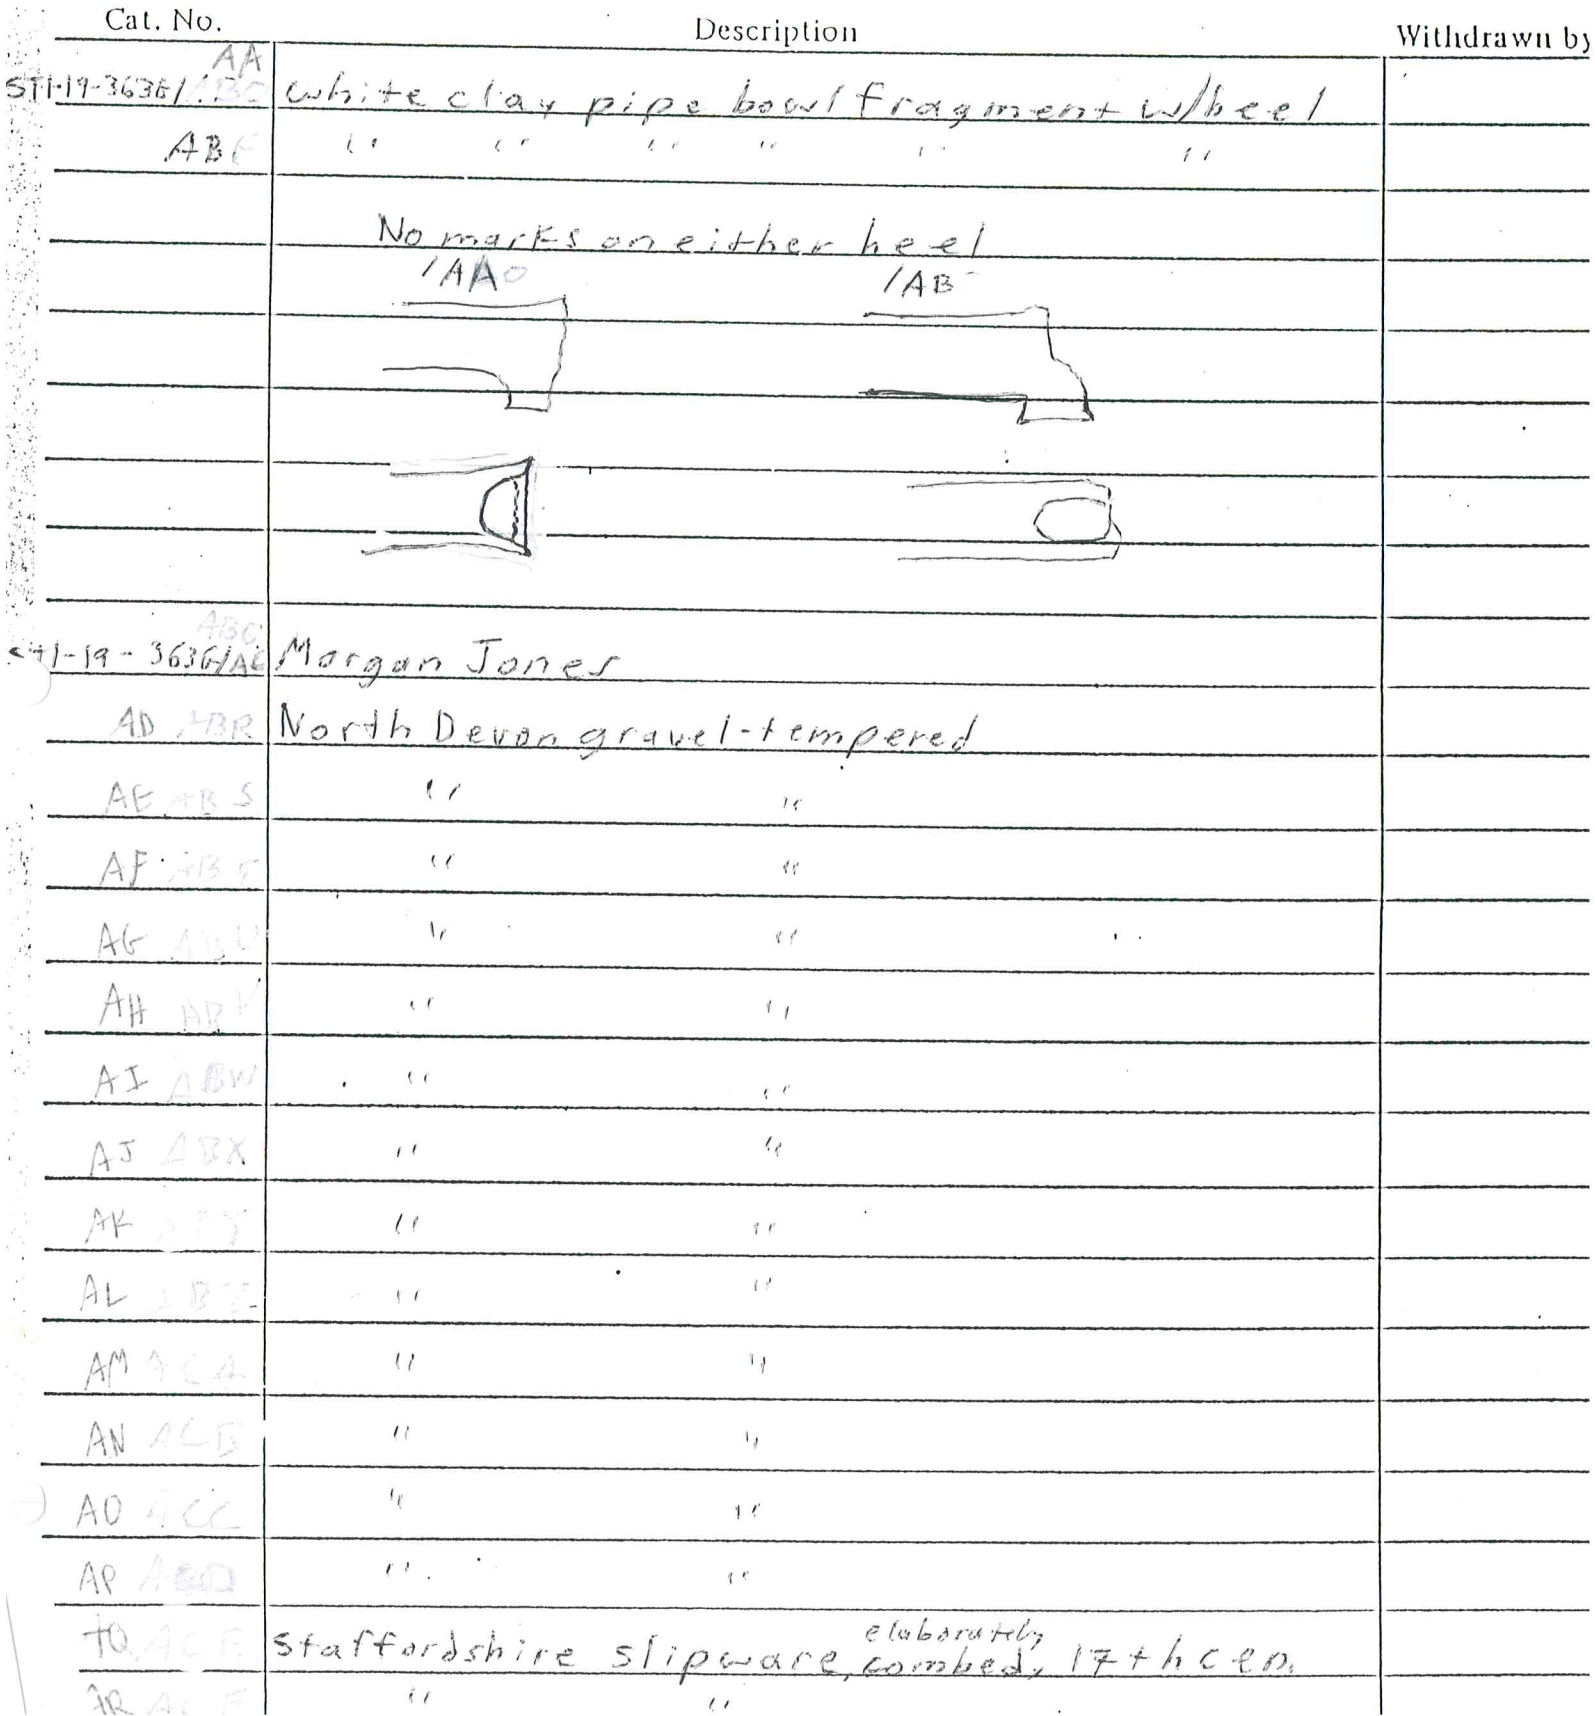 Cat. No. Description Withdrawn by
AA
ST1-19-363G/ White clay pipe bowl fragment w/heel
AB " " " " " "
No marks on either heel
/AA /AB
ABG
ST1-19-363G/AC Morgan Jones
AD ABR North Devon gravel-tempered
AE ABS " "
AF ABT " "
AG ABU " "
AH ABV " "
AI ABW " "
AJ ABX " "
AK ABY " "
AL ABZ " "
AM ACA " "
AN ACB " "
AO ACC " "
AP ACD " "
elaborately
AQ ACE Staffordshire slipware, combed, 17th cen.
AR ACF " "